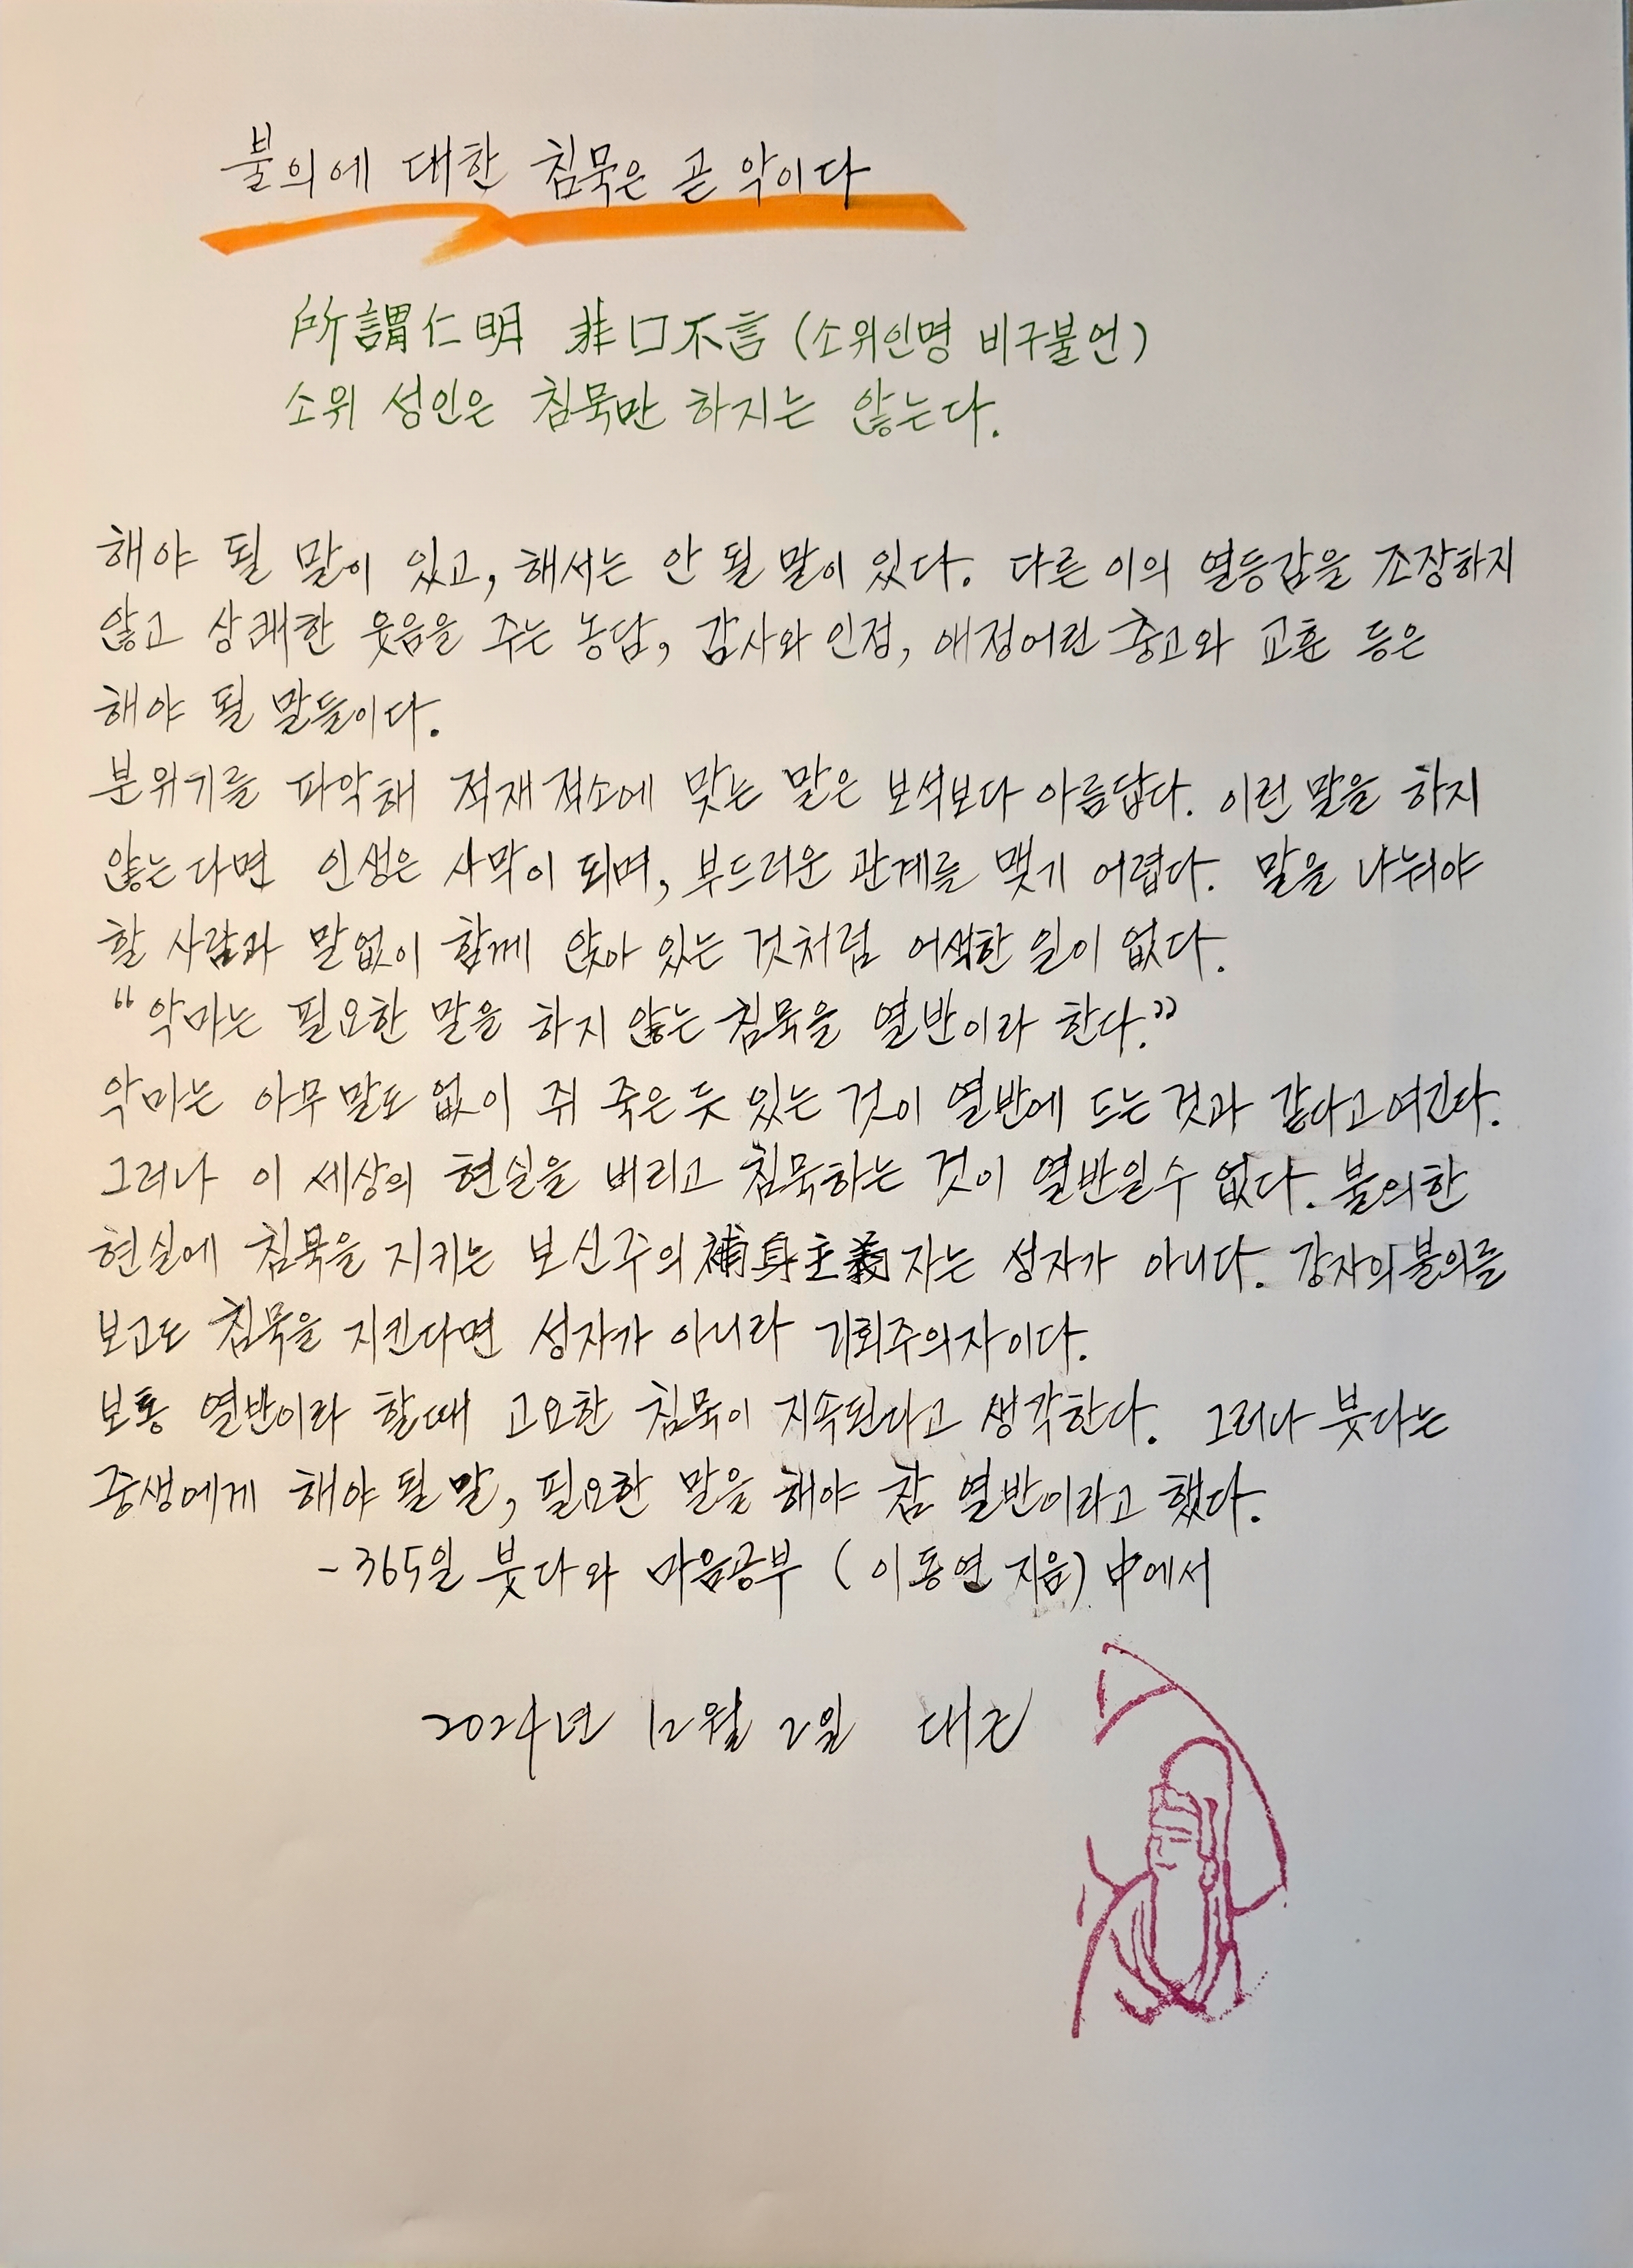 불의에 대한 침묵은 곧 악이다
所謂仁明 非口不言 (소위인명 비구불언)
소위 성인은 침묵만 하지는 않는다.
해야 될 말이 있고, 해서는 안 될 말이 있다. 다른 이의 열등감을 조장하지
않고 상쾌한 웃음을 주는 농담, 감사와 인정, 애정어린 충고와 교훈 등은
해야 될 말들이다.
분위기를 파악해 적재적소에 맞는 말은 보석보다 아름답다. 이런 말을 하지
않는다면 인생은 사막이 되며, 부드러운 관계를 맺기 어렵다. 말을 나눠야
할 사람과 말없이 함께 앉아 있는 것처럼 어색한 일이 없다.
“악마는 필요한 말을 하지 않는 침묵을 열반이라 한다.”
악마는 아무 말도 없이 쥐 죽은 듯 있는 것이 열반에 드는 것과 같다고 여긴다.
그러나 이 세상의 현실을 버리고 침묵하는 것이 열반일 수 없다. 불의한
현실에 침묵을 지키는 보신주의 補身主義자는 성자가 아니다. 강자의 불의를
보고도 침묵을 지킨다면 성자가 아니라 기회주의자이다.
보통 열반이라 할때 고요한 침묵이 지속된다고 생각한다. 그러나 붓다는
중생에게 해야 될 말, 필요한 말을 해야 참 열반이라고 했다.
- 365일 붓다와 마음공부 (이동연 지음) 中에서
2024년 12월 2일